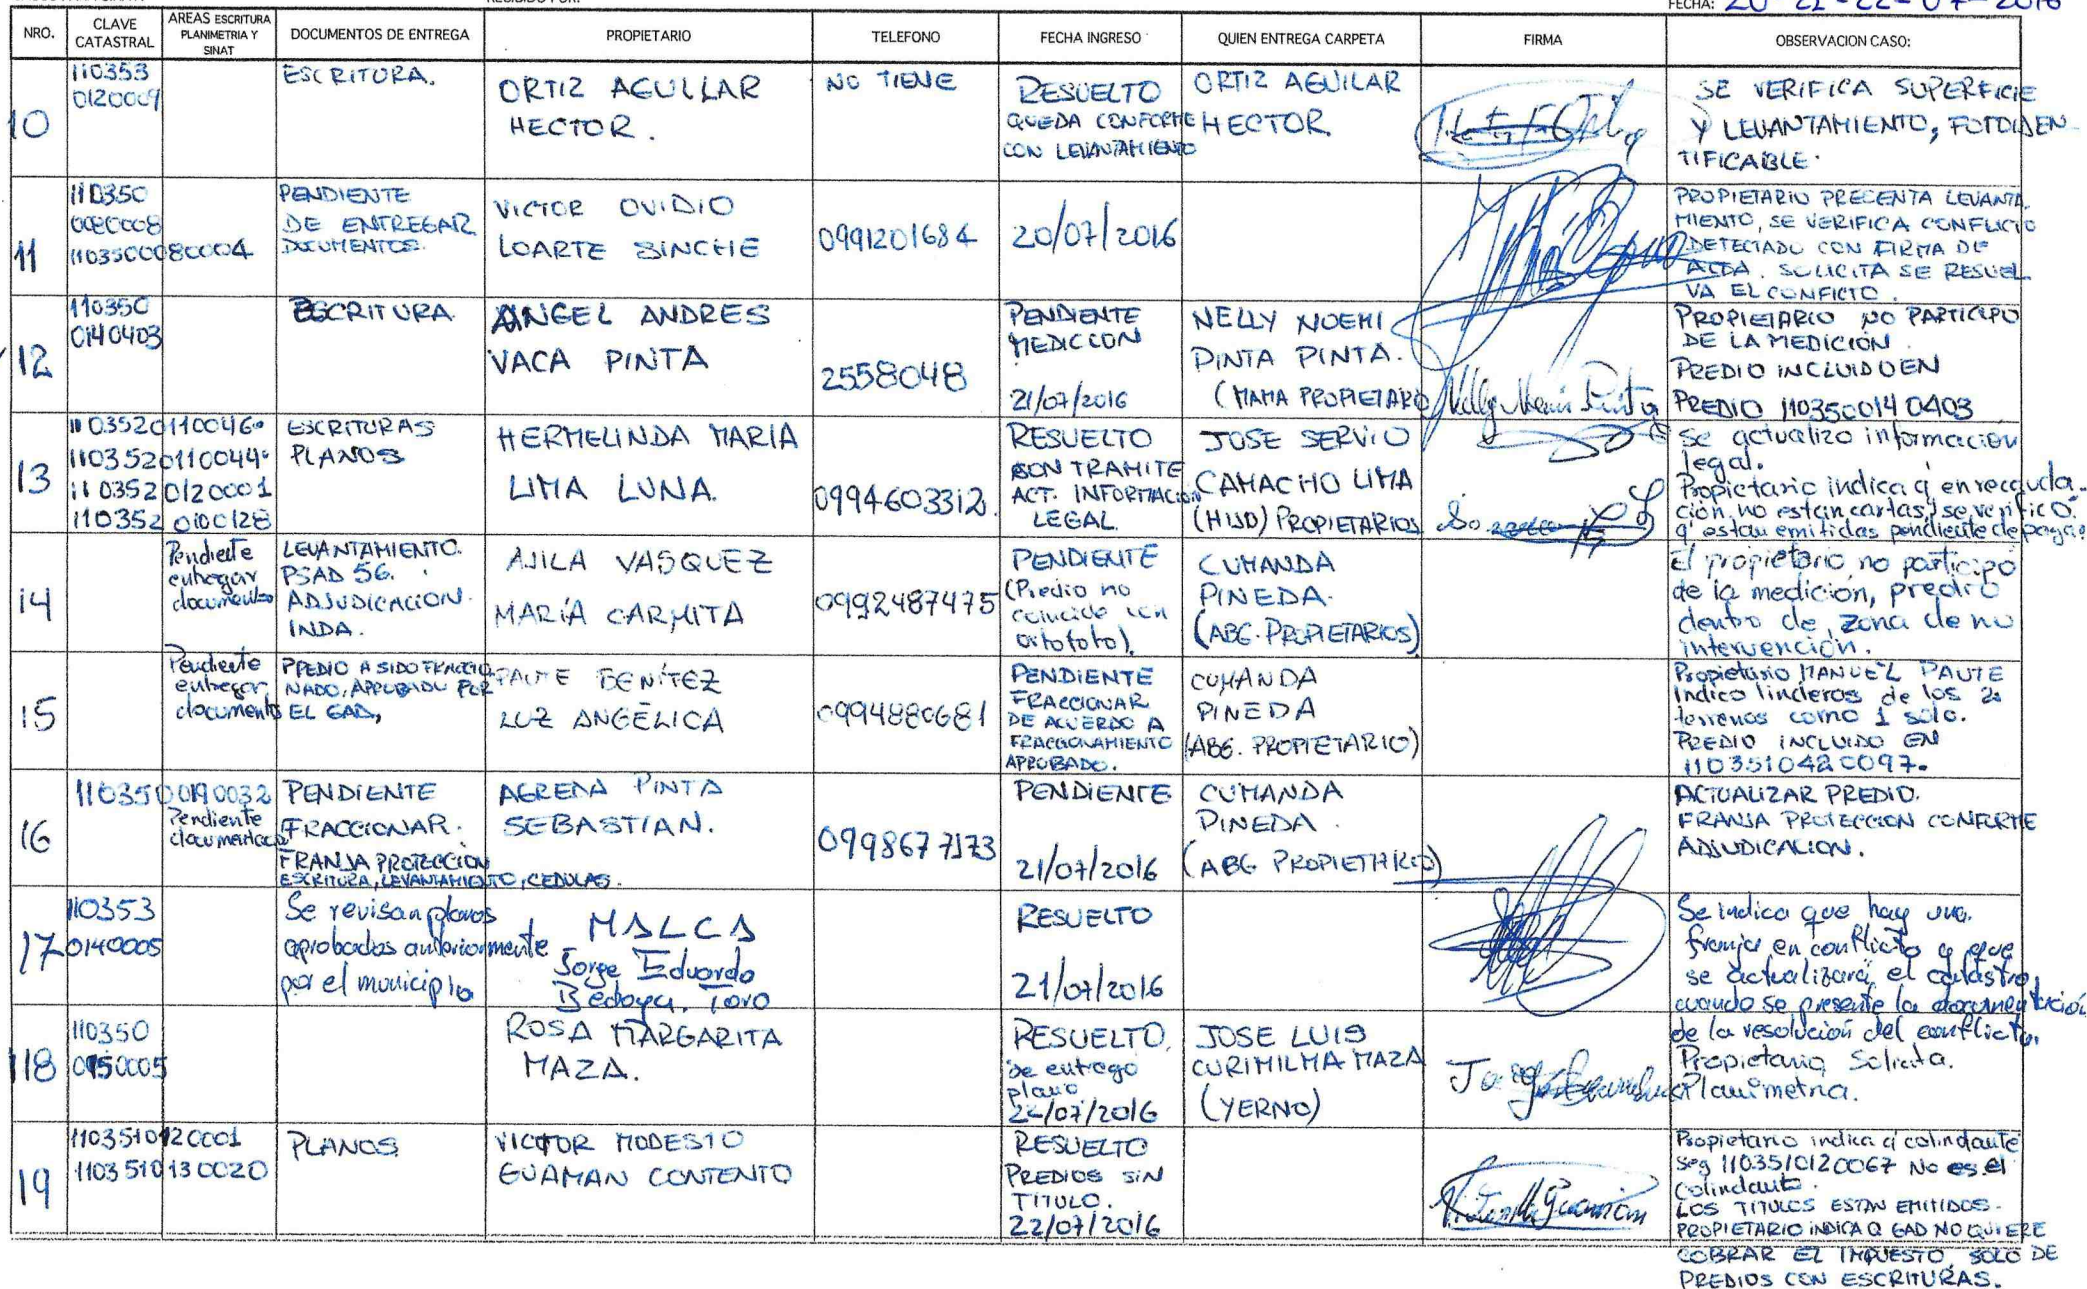 FECHA: 20-21-22-07-2016
NRO.
CLAVE
CATASTRAL
AREAS ESCRITURA
PLANIMETRIA Y
SINAT
DOCUMENTOS DE ENTREGA
PROPIETARIO
TELEFONO
FECHA INGRESO
QUIEN ENTREGA CARPETA
FIRMA
OBSERVACION CASO:
10
110353
0120009
ESCRITURA.
ORTIZ AGUILAR
HECTOR.
NO TIENE
RESUELTO
QUEDA CONFORME
CON LEVANTAMIENTO
ORTIZ AGUILAR
HECTOR
SE VERIFICA SUPERFICIE
Y LEVANTAMIENTO, FOTOIDEN
TIFICABLE.
11
110350
0080008
1103500080004
PENDIENTE
DE ENTREGAR
DOCUMENTOS.
VICTOR OVIDIO
LOARTE SINCHE
0991201684
20/07/2016
PROPIETARIO PRECENTA LEVANTA
MIENTO, SE VERIFICA CONFLICTO
DETECTADO CON FIRMA DE
ACTA. SOLICITA SE RESUEL
VA EL CONFICTO.
12
110350
0140403
ESCRITURA
ANGEL ANDRES
VACA PINTA
2558048
PENDIENTE
MEDICCION
21/07/2016
NELLY NOEMI
PINTA PINTA.
(MAMA PROPIETARIO
Nelly Noemi Pinta
PROPIETARIO NO PARTICIPO
DE LA MEDICIÓN.
PREDIO INCLUIDO EN
PREDIO 1103500140403
13
1103520110046
1103520110044
1103520120001
1103520100128
ESCRITURAS
PLANOS
HERMELINDA MARIA
LIMA LUNA.
0994603312.
RESUELTO
CON TRAMITE
ACT. INFORMACION
LEGAL.
JOSE SERVIO
CAMACHO LIMA
(HIJO) PROPIETARIOS
se actualizo información
legal.
Propietario indica q en recauda-
ción no estan cartas, se verificó.
q' estan emitidas pendiente de pago.
14
Pendiente
entregar
documentos
LEVANTAMIENTO.
PSAD 56.
ADJUDICACION.
INDA.
AJILA VASQUEZ
MARÍA CARMITA
0992487475
PENDIENTE
(Predio no
coincide con
ortofoto).
CUMANDA
PINEDA.
(ABG. PROPIETARIOS)
El propietario no participo
de la medición, predio
dentro de zona de no
intervención.
15
Pendiente
entregar
documents
PREDIO A SIDO FRACCIO
NADO, APROBADO POR
EL GAD,
PAUTE BENÍTEZ
LUZ ANGÉLICA
0994880681
PENDIENTE
FRACCIONAR
DE ACUERDO A
FRACCIONAMIENTO
APROBADO.
CUMANDA
PINEDA
(ABG. PROPIETARIO)
Propietario MANUEL PAUTE
indico linderos de los 2
terrenos como 1 solo.
PREDIO INCLUIDO EN
1103510420097.
16
1103500190032
Pendiente
documentación
PENDIENTE
FRACCIONAR.
FRANJA PROTECCION
ESCRITURA, LEVANTAMIENTO, CEDULAS.
AGREDA PINTA
SEBASTIAN.
0998677173
PENDIENTE
21/07/2016
CUMANDA
PINEDA.
(ABG PROPIETARIO)
ACTUALIZAR PREDIO.
FRANJA PROTECCION CONFORME
ADJUDICACION.
17
110353
0140005
Se revisan planos
aprobados anteriormente
por el municipio
MALCA
Jorge Eduardo
Bedoya Toro
RESUELTO
21/07/2016
Se indica que hay una
franja en conflicto y que
se actualizará el catastro
cuando se presente la documentación
de la resolución del conflicto.
18
110350
0950005
ROSA MARGARITA
MAZA.
RESUELTO.
se entrego
plano
22/07/2016
JOSE LUIS
CURIMILMA MAZA
(YERNO)
Propietario Solicita.
Planimetria.
19
1103510120001
1103510130020
PLANOS
VICTOR MODESTO
GUAMAN CONTENTO
RESUELTO
PREDIOS SIN
TITULO.
22/07/2016
Propietario indica q colindante
seg 1103510120067 No es el
Colindante.
LOS TITULOS ESTAN EMITIDOS.
PROPIETARIO INDICA Q GAD NO QUIERE
COBRAR EL IMPUESTO, SOLO DE
PREDIOS CON ESCRITURAS.